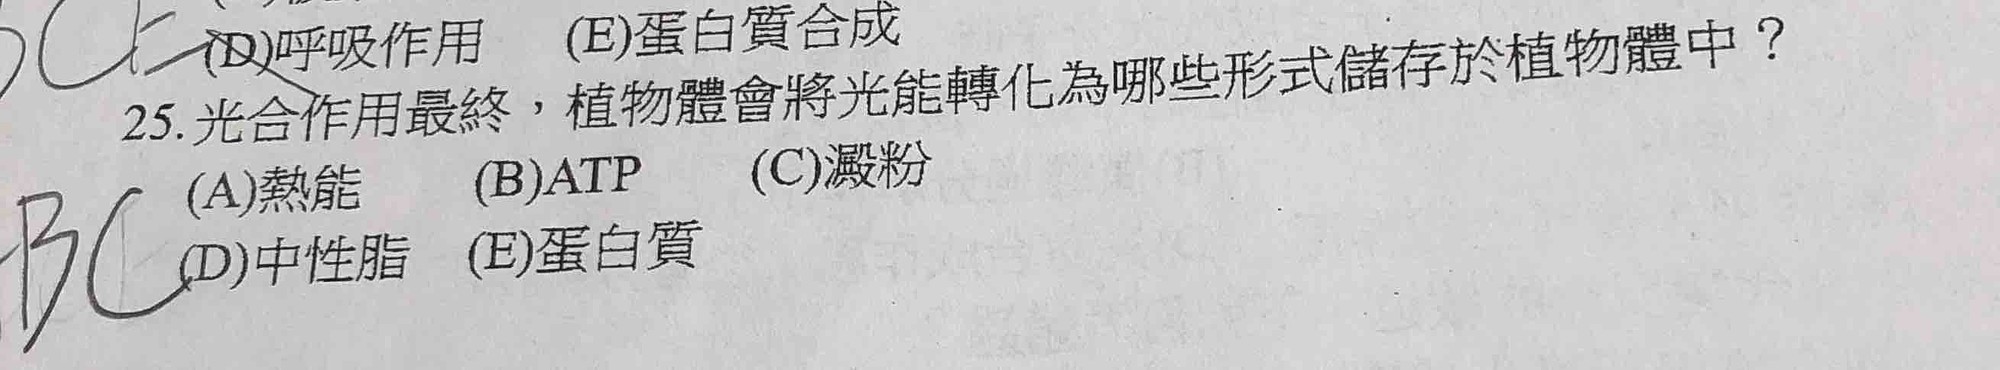 (D)呼吸作用 (E)蛋白質合成
25.光合作用最終，植物體會將光能轉化為哪些形式儲存於植物體中？
(A)熱能 (B)ATP (C)澱粉
BC
(D)中性脂 (E)蛋白質